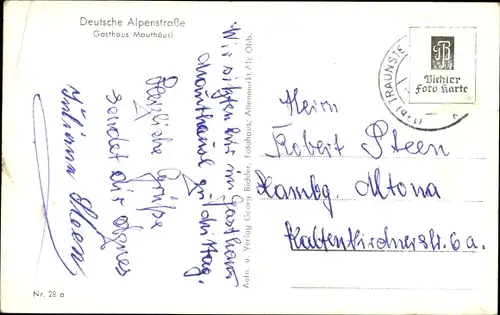 Deutsche Alpenstraße
Gasthaus Mauthäusl
Wir sitzen hier im Gasthaus
Mauthäusl zu Mittag.
Herzliche Grüße
sendet dir Agnes
Juliana
Nr. 28 a
Auto. u. Verlag Georg Bichler, Fotohaus, Altenmarkt-Alz Obb.
TRAUNSTE
PB
Bichler
Foto Karte
Herrn
Robert Steen
Hambg. Altona
Kaltenkircherstr. 6a.